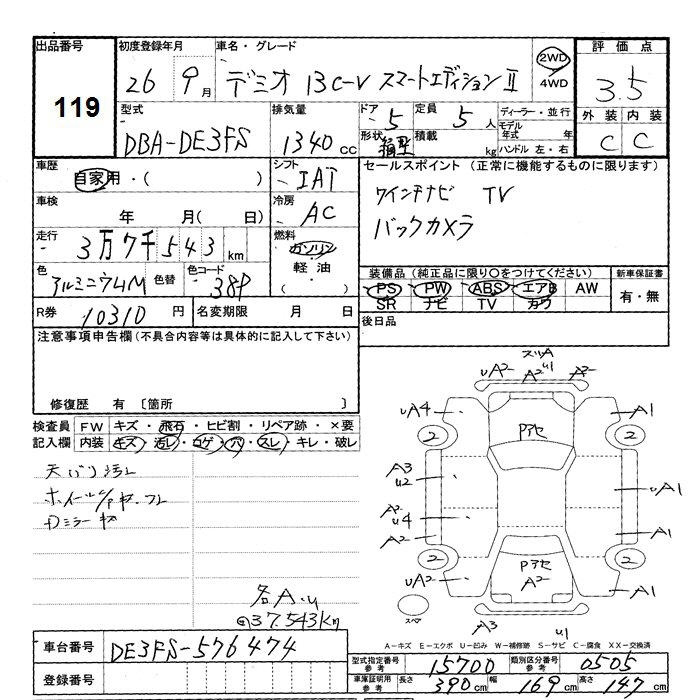 出品番号 初度登録年月 車名・グレード 評価点
119 26 9月 デミオ 13C-V スマートエディションⅡ 2WD 4WD 3.5
外装 内装
C C
型式 排気量 ドア 定員 ディーラー・並行
DBA-DE3FS 1340cc 5 5人 モデル年式 年
形状 積載 kg ハンドル 左・右
箱型
車歴 シフト セールスポイント (正常に機能するものに限ります)
自家用・( ) IAT
車検 年 月( 日) 冷房 AC
ワインチナビ TV
バックカメラ
走行 3万7千543km 燃料 ガソリン 軽油 ・( )
色 アルミニウムM 色替 色コード 38P
装備品(純正品に限り○をつけてください) 新車保証書
PS PW ABS エアB AW 有・無
SR ナビ TV カワ
R券 10310円 名変期限 月 日 後日品
注意事項申告欄(不具合内容等は具体的に記入して下さい)
修復歴 有 〔箇所 〕
検査員 FW キズ・飛石・ヒビ割・リペア跡・×要
記入欄 内装 キズ・汚レ・コゲ・穴・スレ・キレ・破レ
天バリ汚レ
Dミラーキズ
各A.u
37.543Km
スリA
uA2 A2 u1 A2
uA4 A1
Pアセ
2 2
A3
u2
uA1
A2
u4
A2 A1
2 2
Pアセ
uA2 A2 A1
スペア A3 u1
A-キズ E-エクボ U-凹み W-補修跡 S-サビ C-腐食 XX-交換済
車台番号 DE3FS-576474
登録番号
型式指定番号 参考 15700 類別区分番号 参考 0505
車庫証明用 参考 長さ 390cm 幅 169cm 高さ 147cm